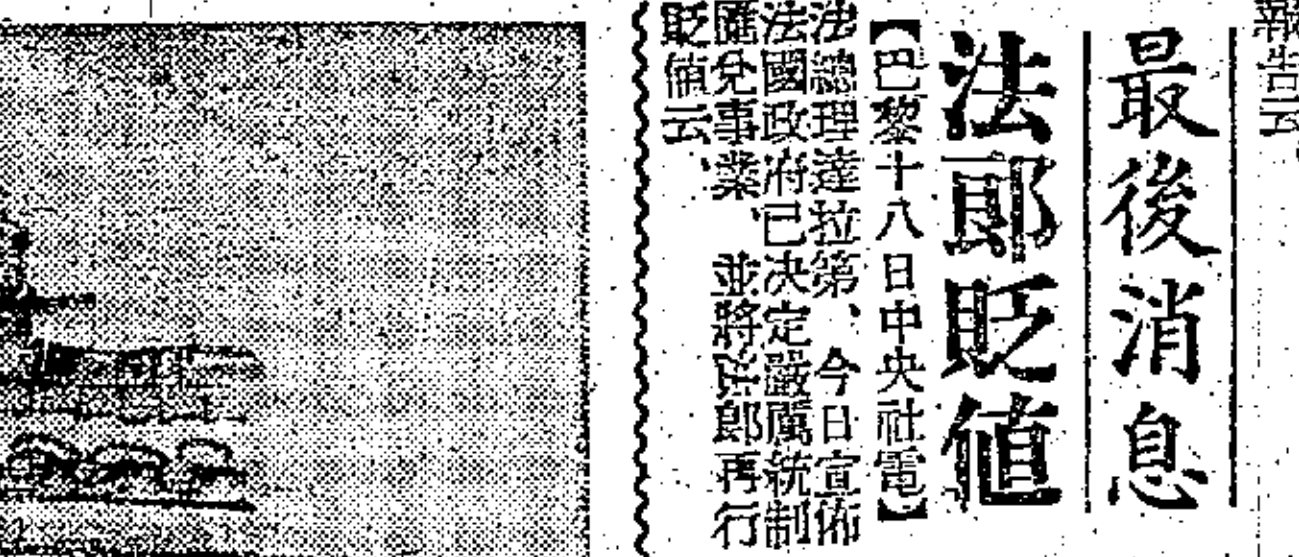 報告云
最後消息
法郎貶値
【巴黎十八日中央社電】
法總理達拉第、今日宣佈
法國政府已决定嚴厲統制
匯兌事業、並將法郎再行
貶値云、